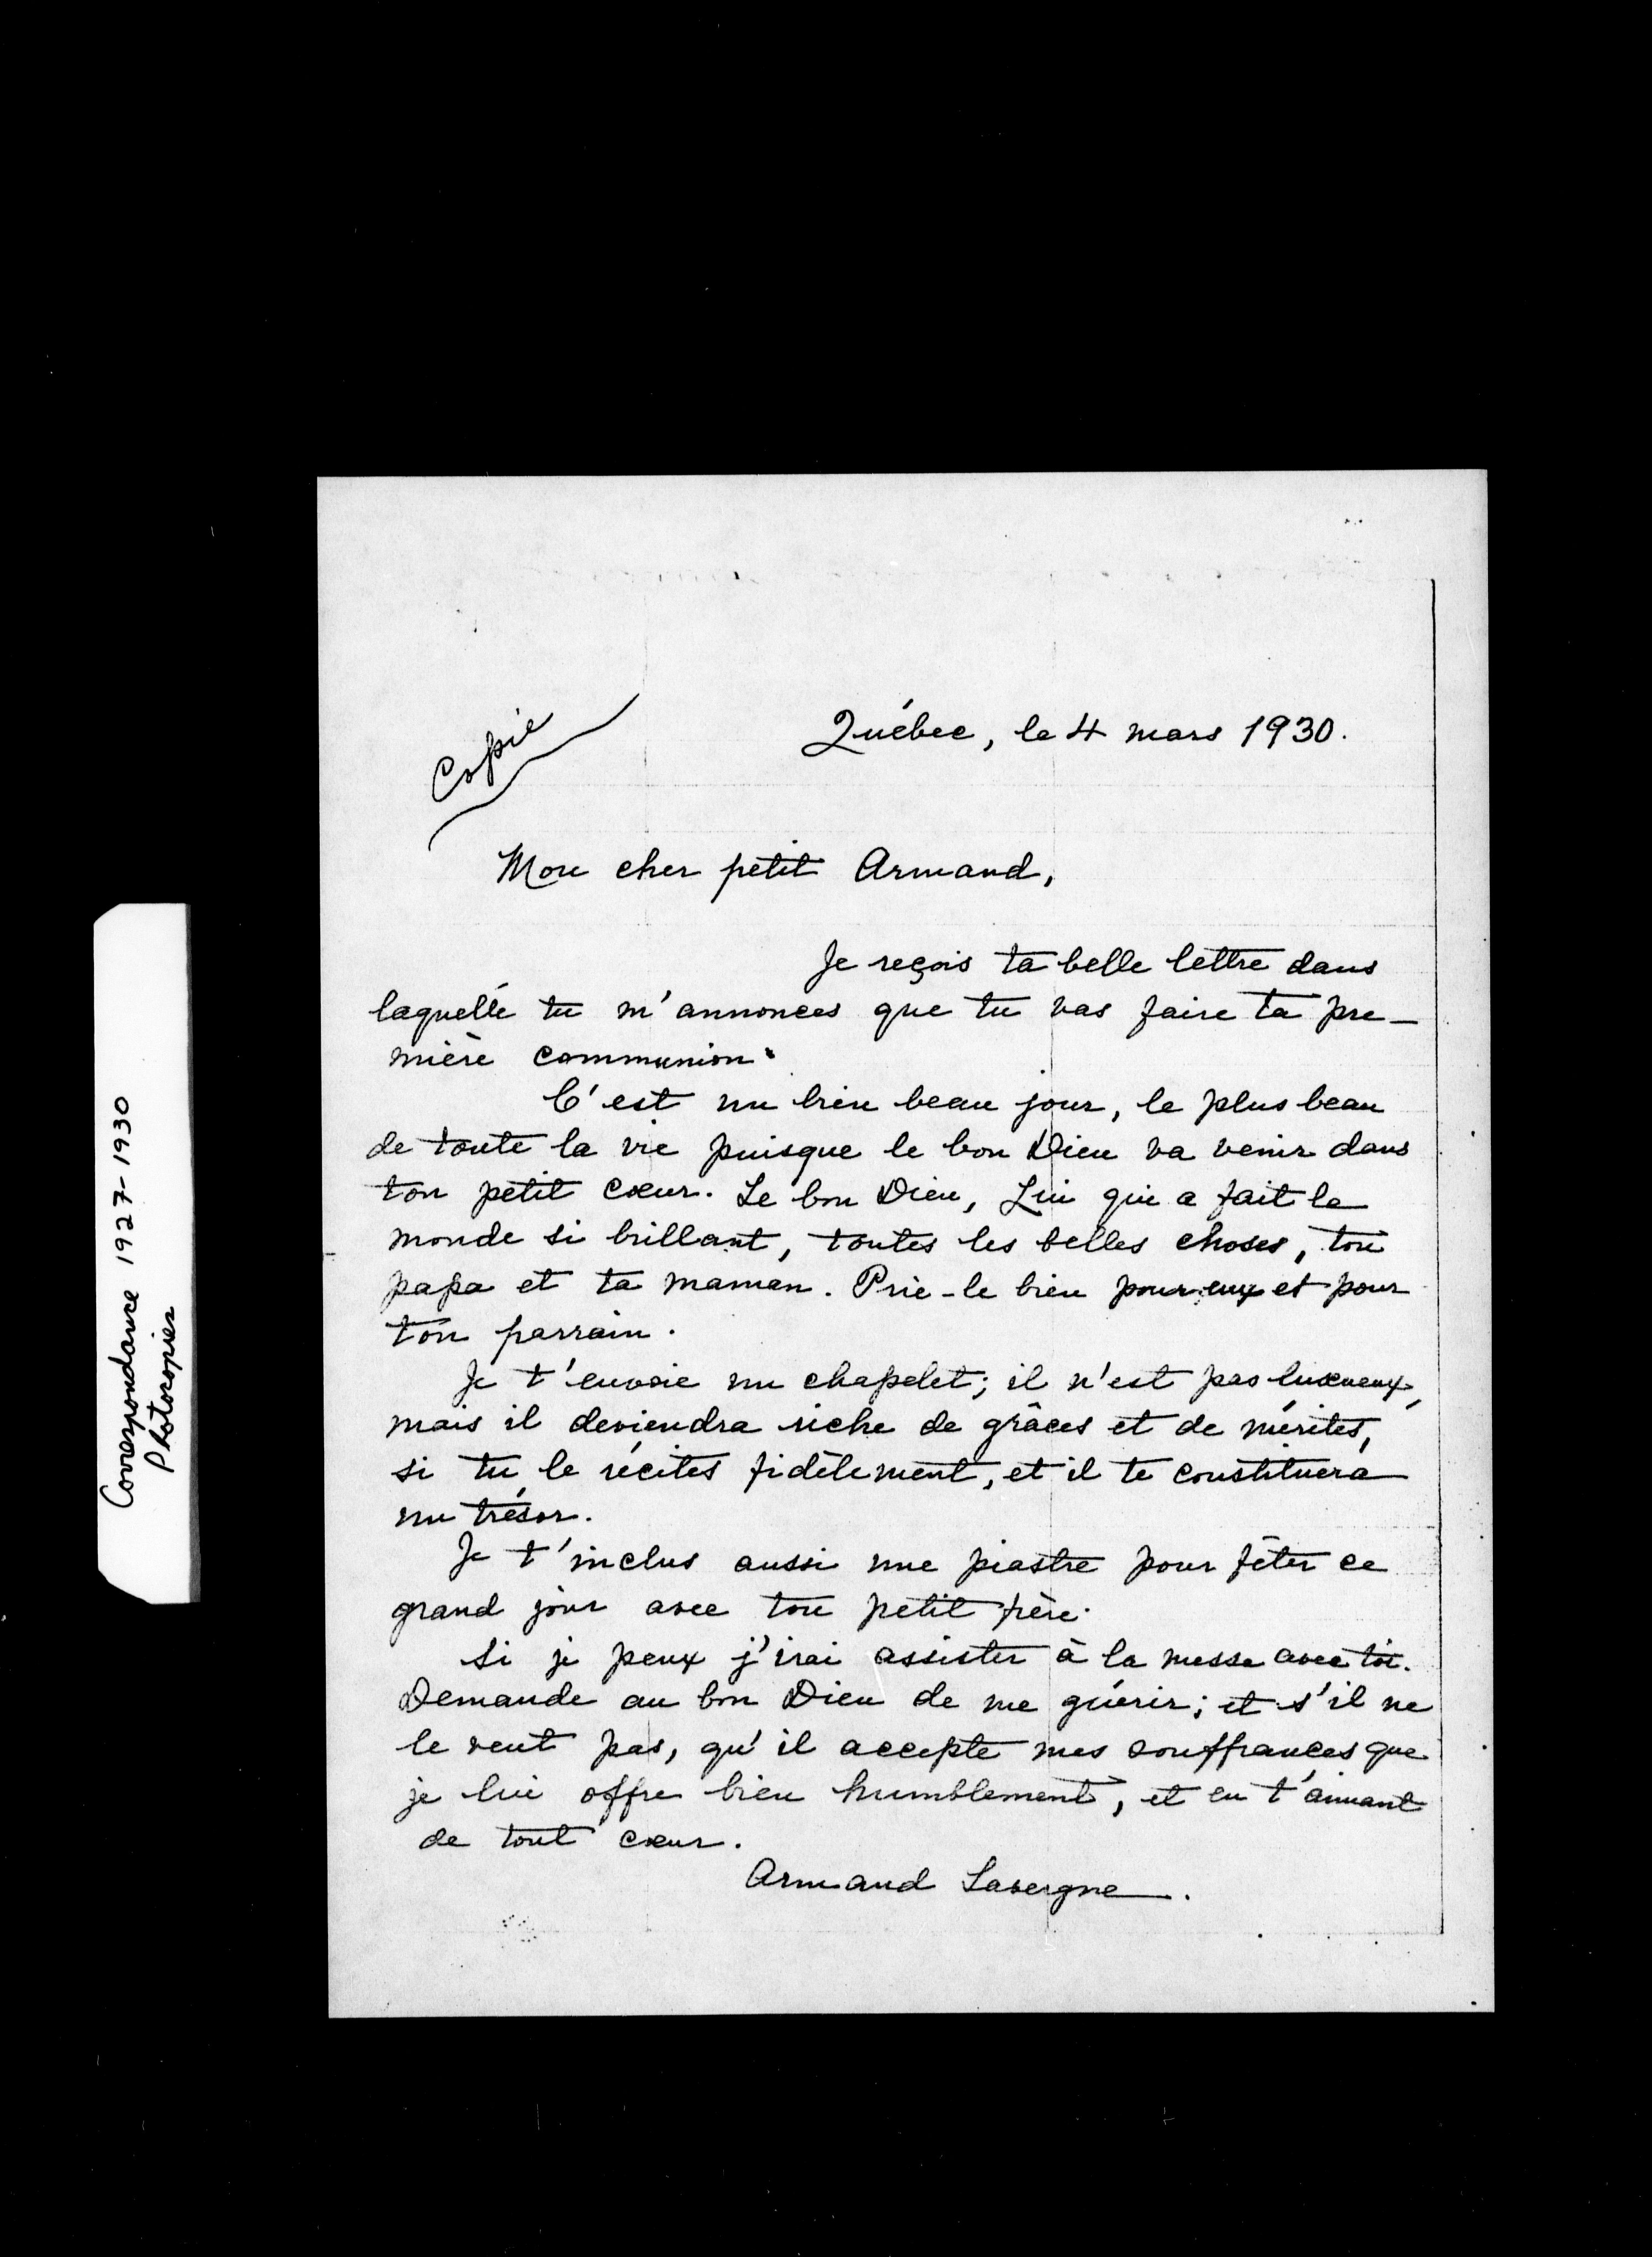 Correspondance 1927-1930
Photocopies
Copie
Québec, le 4 mars 1930.
Mon cher petit Armand,
Je reçois ta belle lettre dans
laquelle tu m'annonces que tu vas faire ta pre-
mière communion.
C'est un bien beau jour, le plus beau
de toute la vie puisque le bon Dieu va venir dans
ton petit cœur. Le bon Dieu, Lui qui a fait le
monde si brillant, toutes les belles choses, ton
papa et ta maman. Prie-le bien pour eux et pour
ton parrain.
Je t'envoie un chapelet; il n'est pas luxueux,
mais il deviendra riche de grâces et de mérites,
si tu le récites fidèlement, et il te constituera
un trésor.
Je t'inclus aussi une piastre pour fêter ce
grand jour avec ton petit frère.
Si je peux j'irai assister à la messe avec toi.
Demande au bon Dieu de me guérir; et s'il ne
le veut pas, qu'il accepte mes souffrances que
je lui offre bien humblement, et en t'aimant
de tout cœur.
Armand Lavergne.